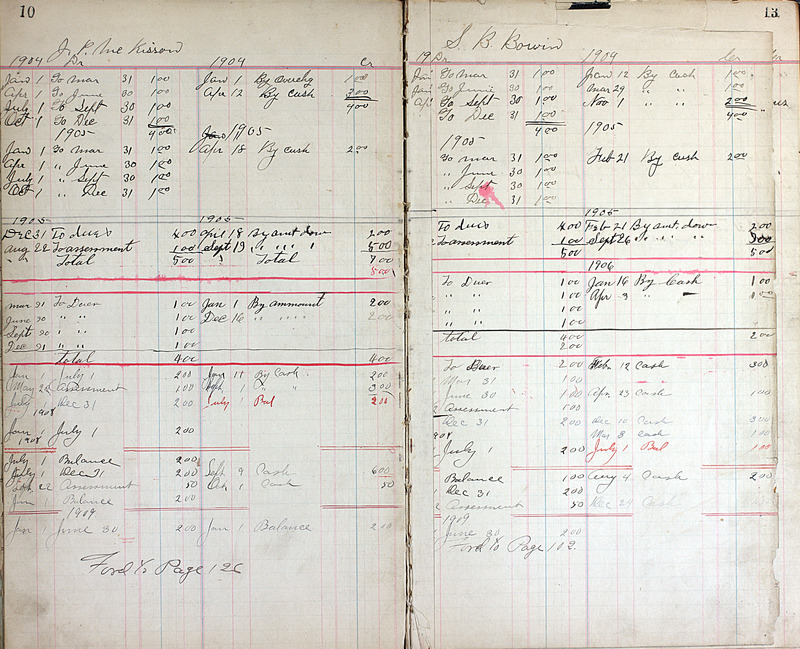 10
J. P. McKissow
1904 Dr. 1904 Cr
Jan 1 To Mar 31 1.00 Jan 1 By 1.00
Apr 1 To June 30 1.00 Apr 12 By Cash 3.00
July 1 To Sept 30 1.00 4.00
Oct 1 To Dec 31 1.00
1905 4.00 1905
Jan 1 To Mar 31 1.00 Apr 18 By Cash 2.00
Apr 1 " June 30 1.00
July 1 " Sept 30 1.00
Oct 1 " Dec 31 1.00
1905 1905
Dec 31 To dues 4.00 April 18 By amt. down 2.00
Aug 22 To assessment 1.00 Sept 19 " " " 5.00
Total 5.00 Total 7.00
5.00
Mar 31 To Dues 1.00 Jan 1 By ammount 2.00
June 30 " " 1.00 Dec 16 " " 2.00
Sept 30 " " 1.00
Dec 31 " " 1.00
Total 4.00 4.00
Jan 1 July 1 2.00 Jan 11 By Cash 2.00
May 22 Assessment 1.00 1 " " 3.00
July Dec 31 2.00 July 1 Bal 2.00
1908
Jan 1 July 1 2.00
1908
July 1 Balance 2.00
July 1 Dec 31 2.00 Sept 9 Cash 6.00
22 Assessment 50 Oct 1 Cash 50
Jan Balance 2.00
1909
Jan 1 June 30 2.00 Jan 1 Balance 2.00
Ford to Page 126
13
S. B. Bowin
19 Dr. 1904 Cr
Jan To Mar 31 1.00 Jan 12 By Cash 1.00
To June 30 1.00 Mar 29 " " 1.00
To Sept 30 1.00 Nov 1 " " 2.00
To Dec 31 1.00 4.00
4.00 1905
1905
To Mar 31 1.00 Feb 21 By Cash 2.00
" June 30 1.00
" Sept 30 1.00
" Dec 31 1.00
1905
To dues 4.00 Feb 21 By amt. down 2.00
To assessment 1.00 Sept 26 " " " 3.00
5.00 5.00
1906
To Dues 1.00 Jan 16 By Cash 1.00
" " 1.00 Apr 3 " 1.00
" " 1.00
" " 1.00
Total 4.00 2.00
2.00
To Dues 2.00 Feb. 12 Cash 3.00
Mar 31 1.00
June 30 1.00 Apr 23 Cash 1.00
Assessment 1.00
Dec 31 2.00 Dec 10 Cash 3.00
Mar 8 Cash 1.00
July 1 2.00 July 1 Bal 1.00
Balance 1.00 Aug 4 Cash 2.00
Dec 31 2.00
Assessment 50 Dec 24 Cash
1909
June 30 2.00
Ford to Page 102.